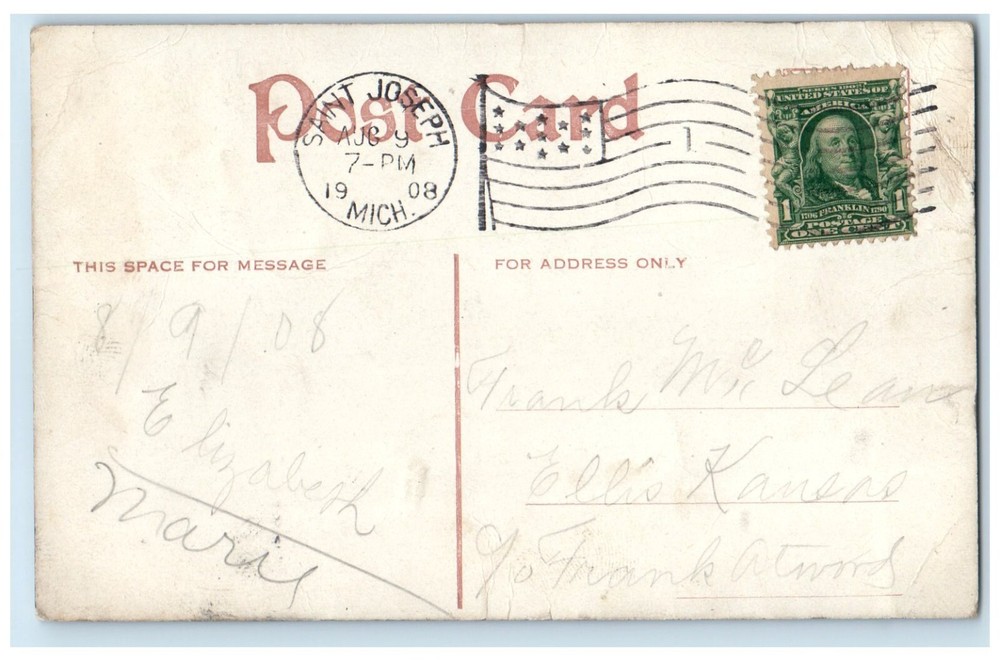 Post Card
SAINT JOSEPH
AUG 9
7-PM
1908
MICH.
1
SERIES 1902
UNITED STATES OF
AMERICA
1706 FRANKLIN 1790
1 POSTAGE 1
ONE CENT
THIS SPACE FOR MESSAGE
8/9/08
Elizabeth
Marie
FOR ADDRESS ONLY
Frank Mc Lean
Ellis Kansas
c/o Frank Atwood